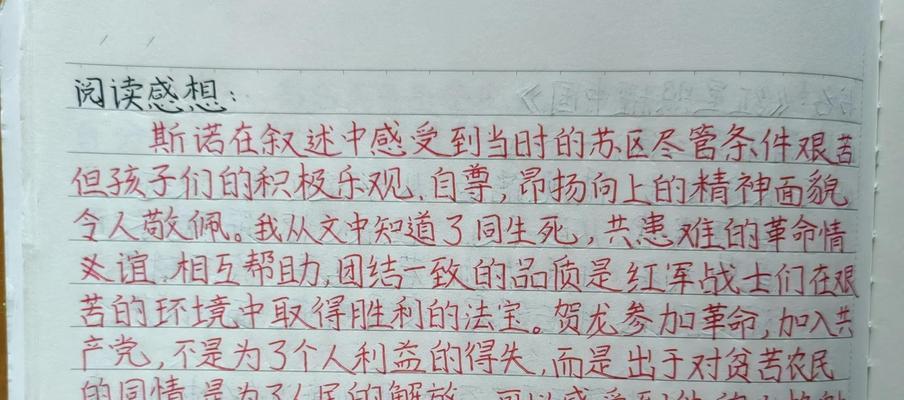 阅读感想:
斯诺在叙述中感受到当时的苏区尽管条件艰苦
但孩子们的积极乐观、自尊,昂扬向上的精神面貌
令人敬佩。我从文中知道了同生死,共患难的革命情
谊,相互帮助,团结一致的品质是红军战士们在艰
苦的环境中取得胜利的法宝。贺龙参加革命,加入共
产党,不是为了个人利益的得失,而是出于对贫苦农民
的同情,是为了人民的解放